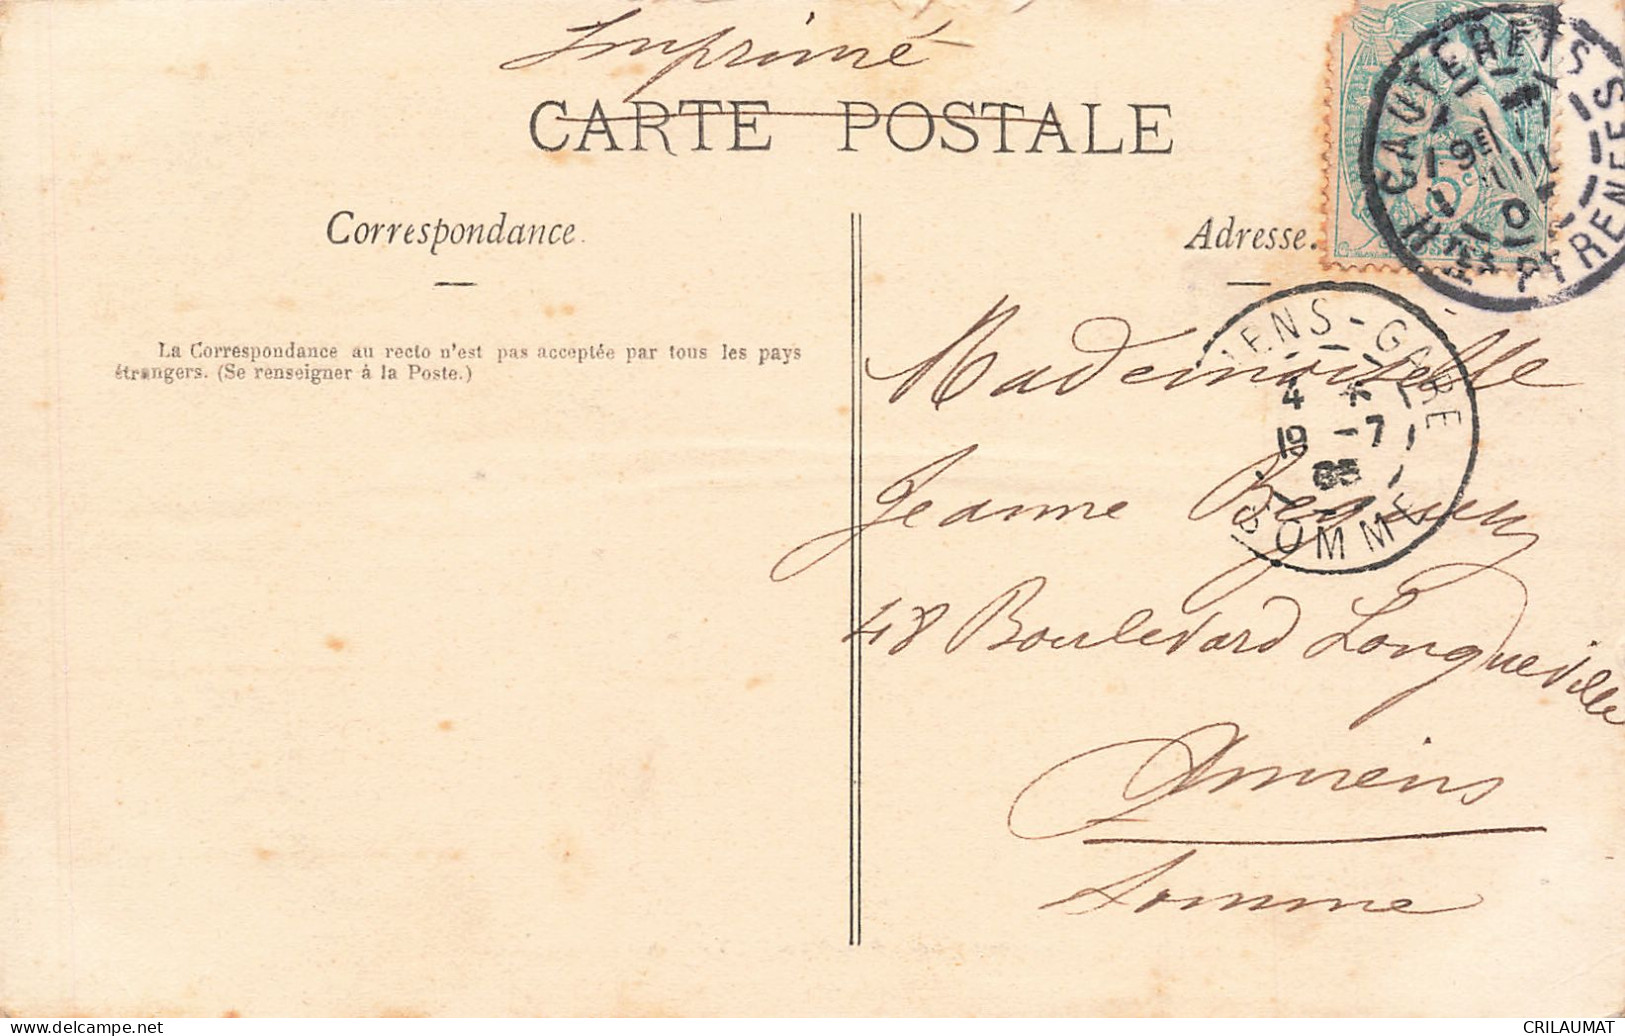 Imprimé
CARTE POSTALE
Correspondance.
Adresse.
La Correspondance au recto n'est pas acceptée par tous les pays
étrangers. (Se renseigner à la Poste.)
CAUTERETS
Htes PYRENEES
5c
IENS-GARE
4
19 -7
05
SOMME
Mademoiselle
Jeanne
48 Boulevard Longueville
Amiens
Somme
delcampe.net
CRILAUMAT